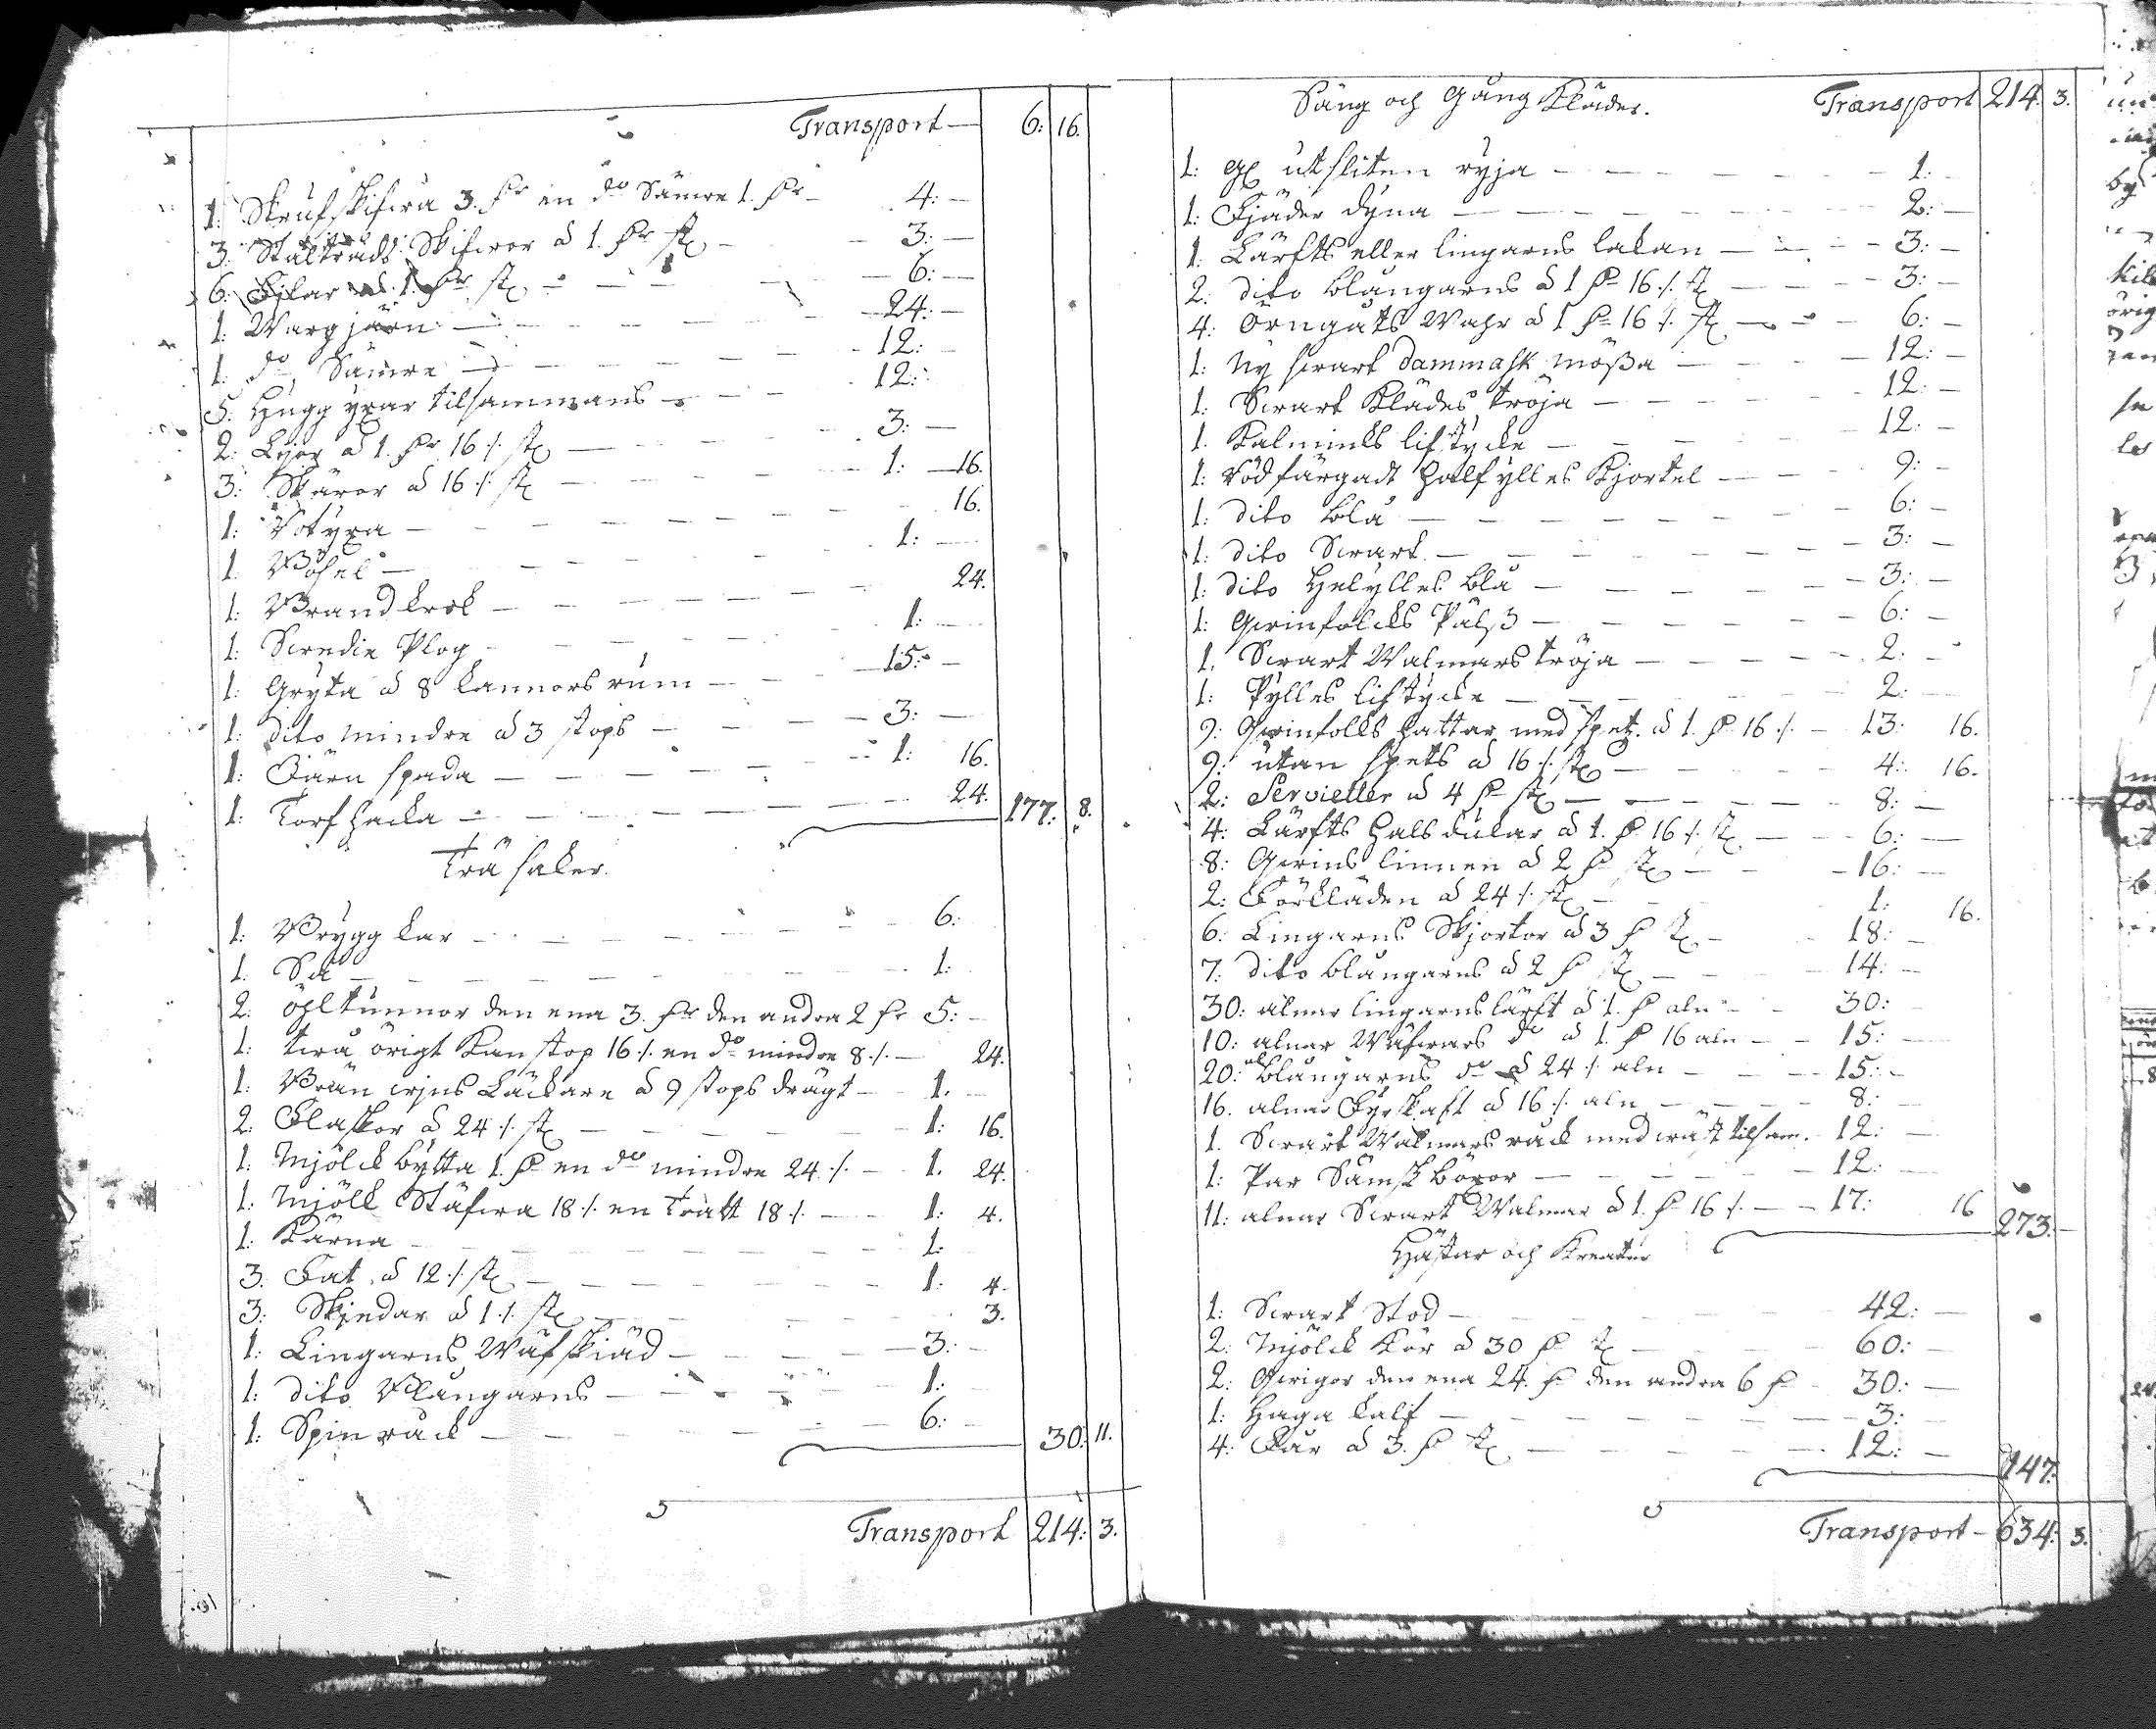 Transport — 6: 16.
1: Skrufskifwa 3. Pr en do Sämre 1. Pr — 4: —
3: Ståltråds Skifwor à 1. Pr st — 3: —
6: Fjlar à 1. Pr st — 6: —
1: Wargjärn — 24: —
1: do Sämre — 12: —
5: Hugg yxar tilsammans — 12:
2: Lijor à 1. Pr 16 /. st — 3: —
3: Skäror à 16 /. st — 1: — 16.
1: Notyxa — 16.
1: Bösel — 1: —
1: Brandkrok — 24.
1: Swedie Plog — 1: —
1: Gryta à 8 kannors rum — 15: —
1: dito mindre à 3 stops — 3: —
1: Järn spada — 1: 16.
1: Torf hacka — 24. 177: 8.
Trä saker.
1: Brygg kar — 6:
1: Så — 1:
2: öhltunnor den ena 3. Pr den andra 2 Pr 5: —
1: twå örigt Kanstop 16 /. en do mindre 8 /. — 24.
1: Bränwijns Läckare à 9 stops drägt — 1. —
2: Flaskor à 24 /. st — 1: 16.
1: Mjölck bytta 1. P en do mindre 24 /. — 1. 24.
1: Mjölk Stäfwa 18 /. en Tratt 18 /. — 1: 4.
1: Kärna — 1:
3: Fat à 12 /. st — 1: 4.
3: Skjedar à 1 /. st — 3.
1: Lingarns Wäfskiäd — 3: —
1: dito Blångarns — 1:
1: Spinråck — 6: — 30: 11.
Transport 214: 3.
Säng och Gång Kläder. Transport 214: 3.
1: utsliten ryja — 1: —
1: Fjäder dyna — 2: —
1: Lärfts eller lingarns lakan — 3: —
2: dito blångarns à 1 P 16 /. st — 3: —
4: Örngåts Wahr à 1 P 16 /. st — 6: —
1: Ny swart Dammask mössa — 12: —
1: Swart Klädes tröja — 12: —
1. Kalminks lifstycke — 12: —
1: Rödfärgadt halfylles Kjortel — 9: —
1: dito blå — 6: —
1: dito Swart — 3: —
1: dito Helylles blå — 3: —
1: Qwinfolcks Päls — 6: —
1. Swart Walmars tröja — 2: —
1: Pylles lifstycke — 2: —
9: Qwinfolks hattar med spetz. à 1. P 16 /. — 13: 16.
9: utan spets à 16 /. st — 4: 16.
2: Servietter à 4 P st — 8: —
4: Lärfts halsdukar à 1. P 16 /. st — 6: —
8: Qwins linnen à 2 P st — 16: —
2: Förkläden à 24 /. st — 1: 16.
6: Lingarns Skjortor à 3 P st — 18: —
7: dito blångarns à 2 P st — 14: —
30: alnar lingarns lärft à 1. P aln — 30:
10: alnar Wäfwars do à 1. P 16 aln — 15: —
20: al blångarns do à 24 /. aln — 15: —
16. alnar Fyrskaft à 16 /. aln — 8: —
1. Swart Walmars råck med wäst tilsam. — 12: —
1: Par Sämskböxor — 12: —
11: alnar Swart Walmar à 1. P 16 /. — 17: 16 273: —
Hästar och Kreatur
1: Swart Stod — 42: —
2: Mjölck Kor à 30 P st — 60: —
2: Qwigor den ena 24. P den andra 6 P — 30: —
1: Haga kalf — 3: —
4: Får à 3. P st — 12: — 147:
Transport — 634: 3.